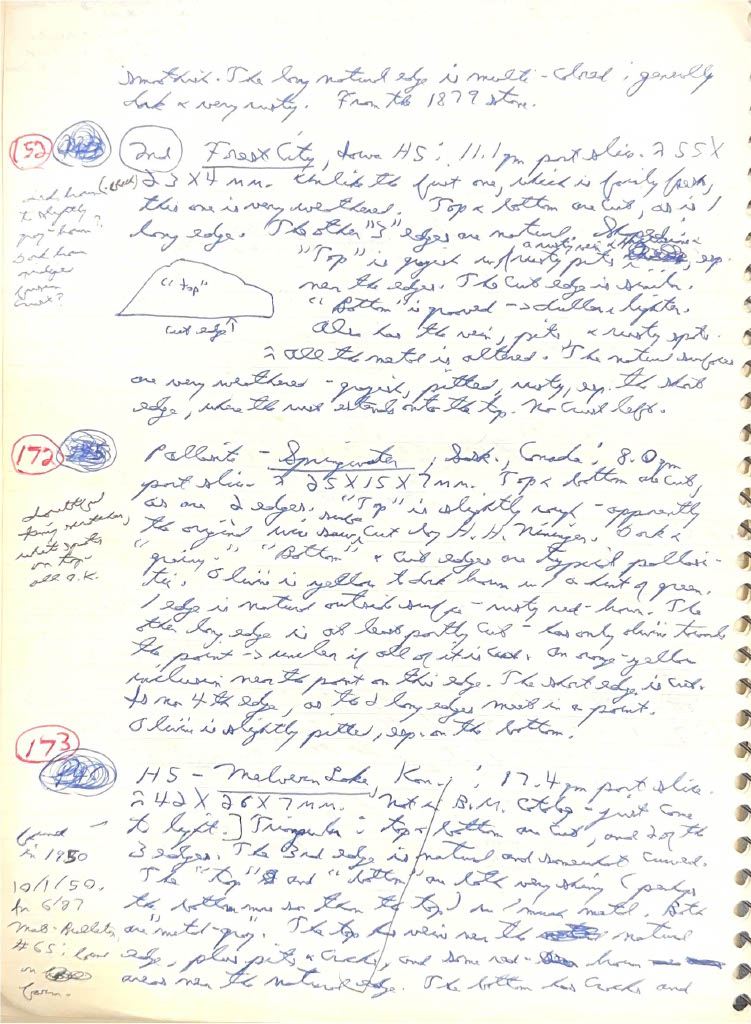 smoothish. The long natural edge is multi-colored; generally
dark & very rusty. From the 1879 stone.
152 2nd Forest City, Iowa H5; 11.1 gm part slice. ≈ 55 X
23 X 4 mm. Unlike the first one, which is fairly fresh,
this one is very weathered. Top & bottom are cut, as is 1
long edge. The other "3" edges are natural.
"Top" is grayish w/ rusty pits, esp.
near the edges. The cut edge is similar.
"Bottom" is grooved -> duller & lighter.
Also has the vein, pits, & rusty spots.
≈ all the metal is altered. The natural surfaces
are very weathered - grayish, pitted, rusty, esp. the short
edge, where the rust extends onto the top. No crust left.
"top"
cut edge ↑
to slightly
gray-brown?
Dark brown
fusion
crust?
172 Pallasite - Springwater, Sask., Canada; 8.0 gm
part slice ≈ 25 X 15 X 7 mm. Top & bottom are cut,
as are 2 edges. "Top" is slightly rough - apparently
the original wire saw cut by H. H. Nininger. Dark &
"grainy." "Bottom" & cut edges are typical pallasi-
tic. Olivine is yellow to dark brown w/ a hint of green.
1 edge is natural outside surface - rusty red-brown. The
other long edge is at least partly cut - has only olivine towards
the point -> unclear if all of it is cut. An orange-yellow
inclusion near the point on this edge. The short edge is cut.
Is no 4th edge, as the 2 long edges meet in a point.
Olivine is slightly pitted, esp. on the bottom.
white spots
on top
all O.K.
173
H5 - Melvern Lake, Kan.; 17.4 gm part slice.
≈ 42 X 26 X 7 mm. Not in B.M. Catalog - just came
to light.] Triangular; top & bottom are cut, and 2 of the
3 edges. The 3rd edge is natural and somewhat curved.
The "top" and "bottom" are both very shiny (perhaps
the bottom more so than the top) w/ much metal. Both
are "metal-gray". The top has veins near the natural
edge, plus pits & cracks, and some red-brown
areas near the natural edge. The bottom has cracks and
found
in 1950
10/1/50.
In 6/87
Met. Bulletin
#65: found
on
farm.